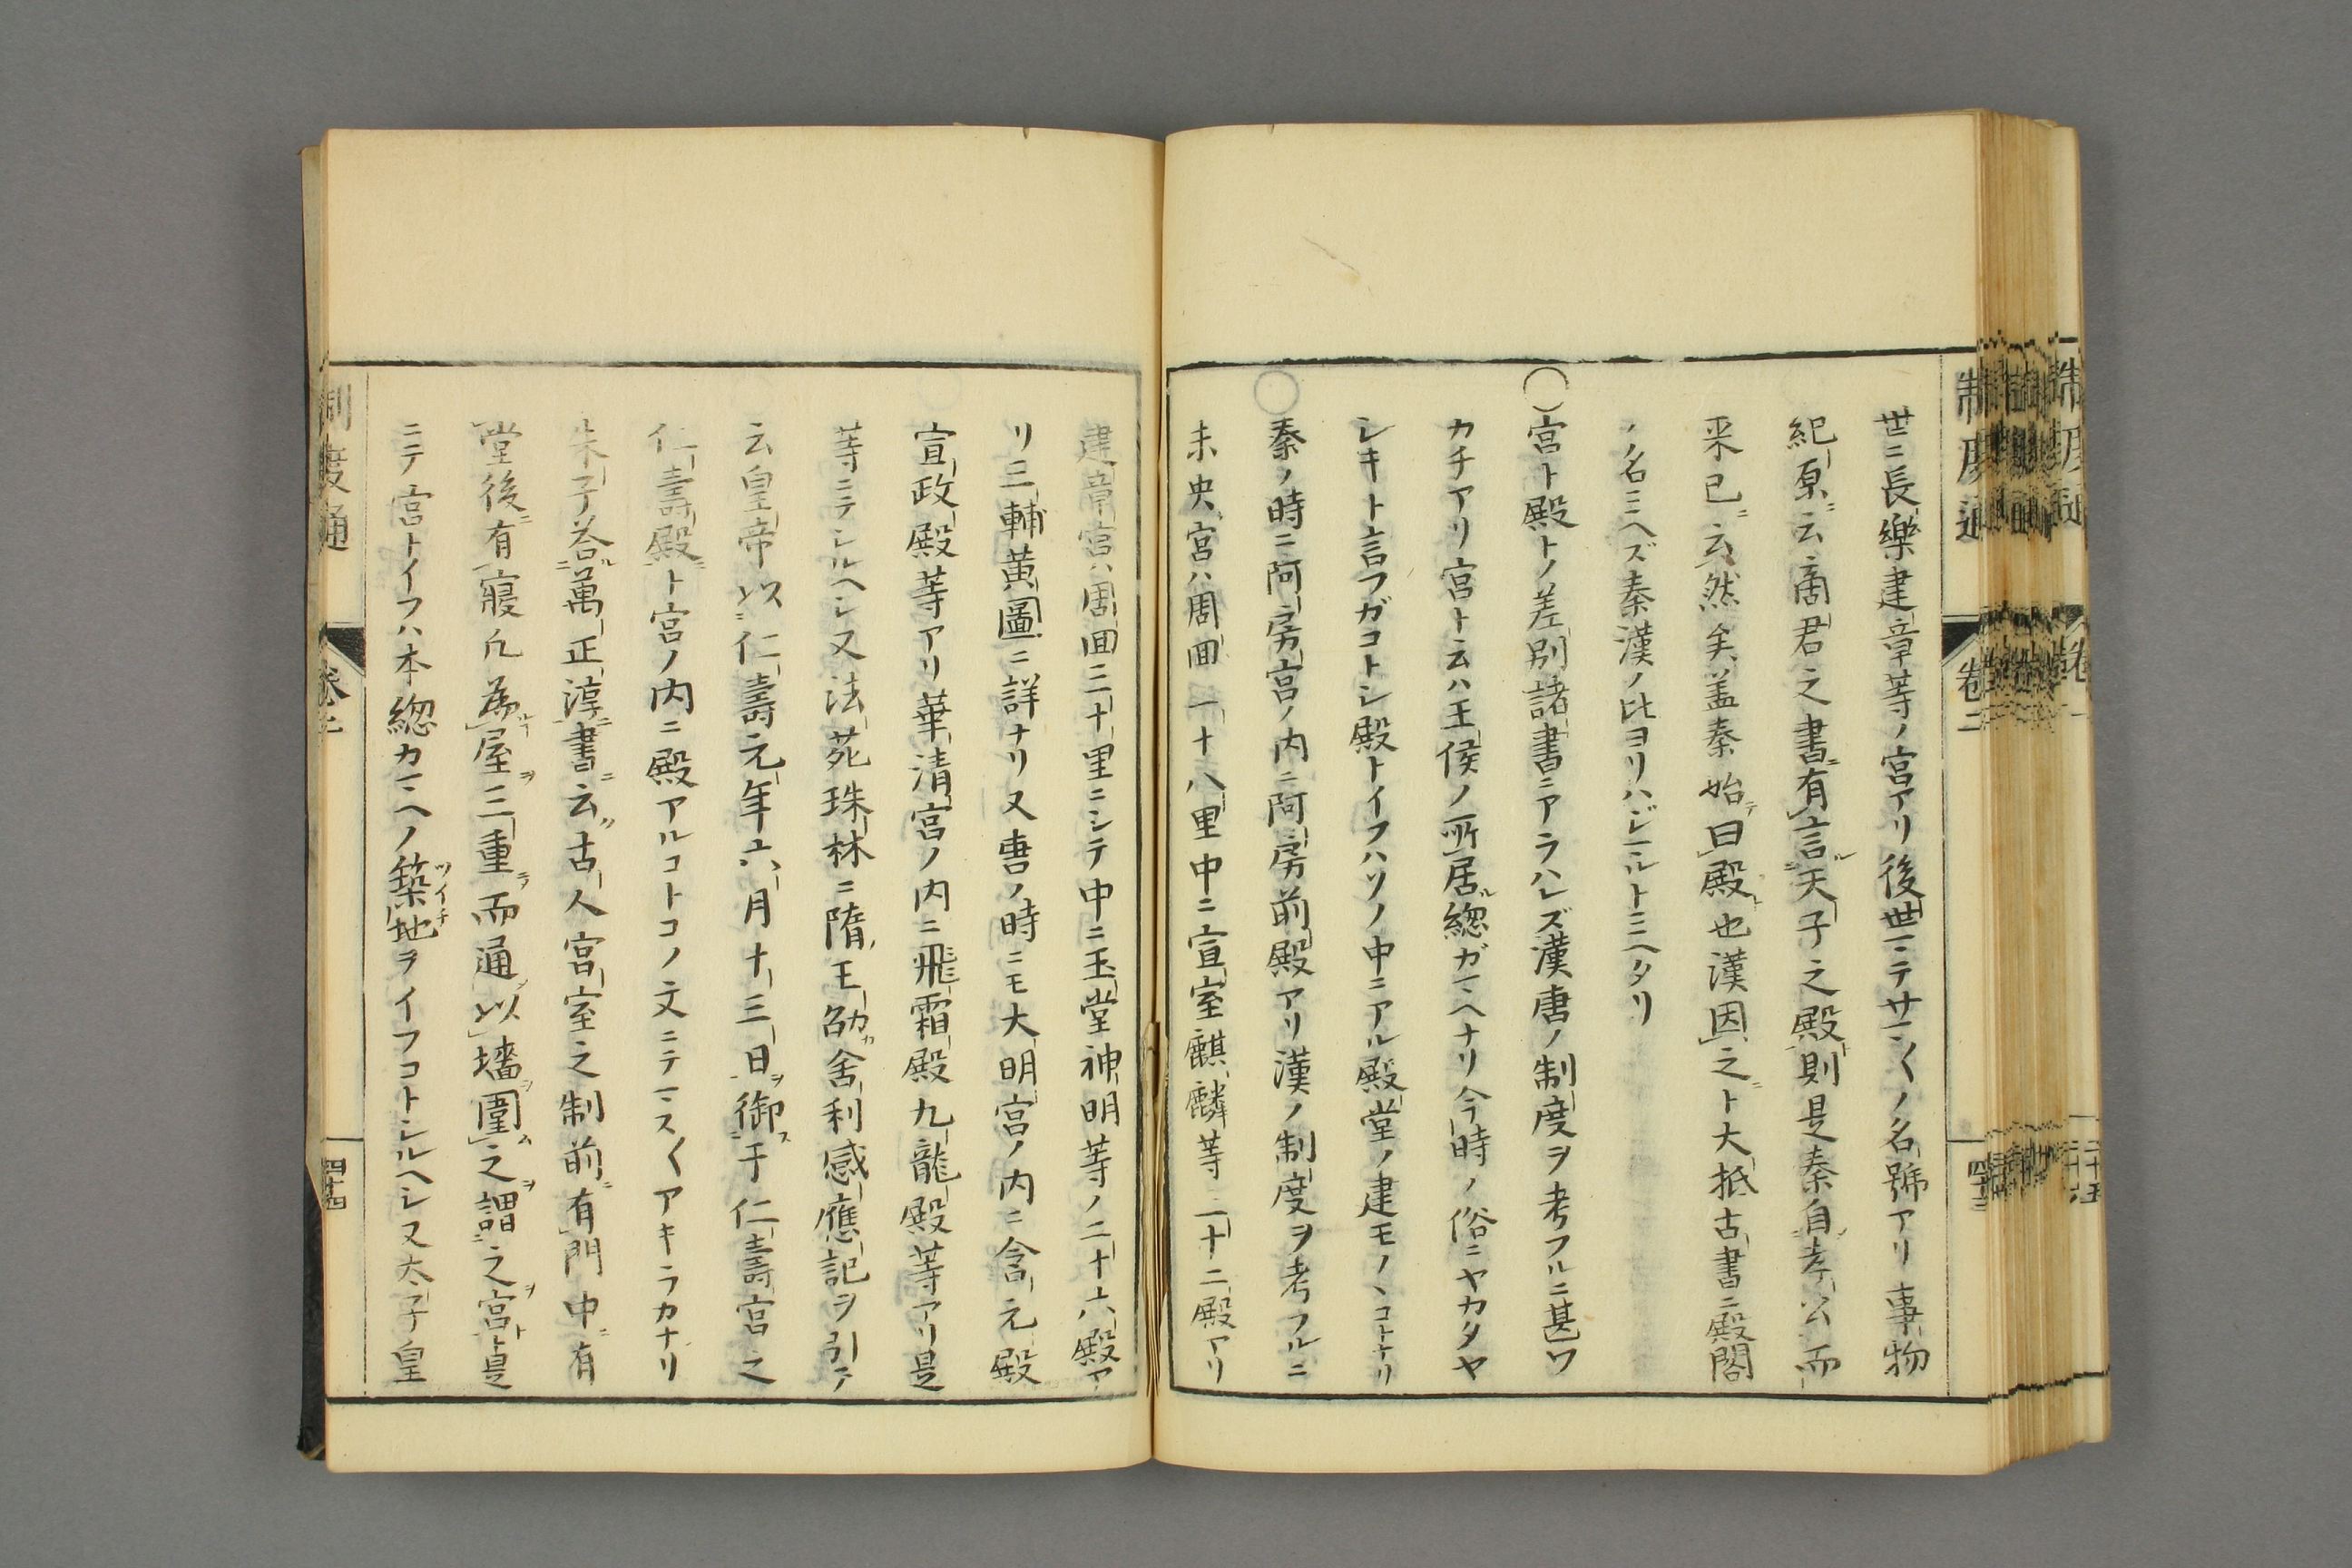 世ニ長樂建章等ノ宮アリ後世ニテサマ〱ノ名號アリ事物
紀原ニ云商君之書ニ有言天子之殿則是秦自孝公而
来已ニ云然矣蓋秦始テ曰殿ト也漢因之ニト大抵古書ニ殿閣
ノ名ミヘズ秦漢ノ比ヨリハジマルトミヘタリ
○宮ト殿トノ差別諸書ニアラハレズ漢唐ノ制度ヲ考フルニ甚ワ
カチアリ宮ト云ハ王侯ノ所居ル總ガマヘナリ今時ノ俗ニヤカタヤ
シキト言フガコトシ殿トイフハソノ中ニアル殿堂ノ建モノヽコトナリ
○秦ノ時ニ阿房宮ノ内ニ阿房前殿アリ漢ノ制度ヲ考フルニ
未央宮ハ周囬一十八里中ニ宣室麒麟等二十二殿アリ
建章宮ハ周囬三十里ニシテ中ニ玉堂神明等ノ二十六殿ア
リ三輔黄圖ニ詳ナリ又唐ノ時ニモ大明宮ノ内ニ含元殿
宣政殿等アリ華清宮ノ内ニ飛霜殿九龍殿等アリ是
等ニテシルヘシ又法苑珠林ニ隋ノ王劭カ舍利感應記ヲ引テ
云皇帝以仁壽元年六月十三日ヲ御ス于仁壽宮之
仁壽殿ニト宮ノ内ニ殿アルコトコノ文ニテマス〱アキラカナリ
朱子答ル萬正淳ニ書ニ云ク古人宮室之制前ニ有門中ニ有
堂後ニ有寢凡為ルヿ屋ヲ三重ニテ而通シ以墻ヲ圍ム之ヲ謂之ヲ宮ト是
ニテ宮トイフハ本總カマヘノ築地ツイチヲイフコトシルヘシ又太子皇
制度通
卷二
四十三
制度通
卷二
四十四